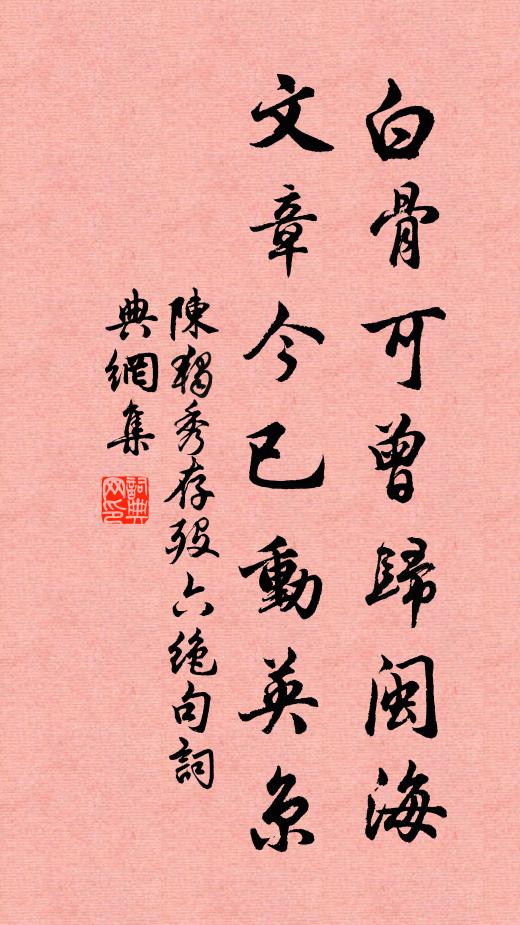 白骨可曾歸閩海
文章今已動英京
陳獨秀存殁六绝句詞
典網集
詞典
网印